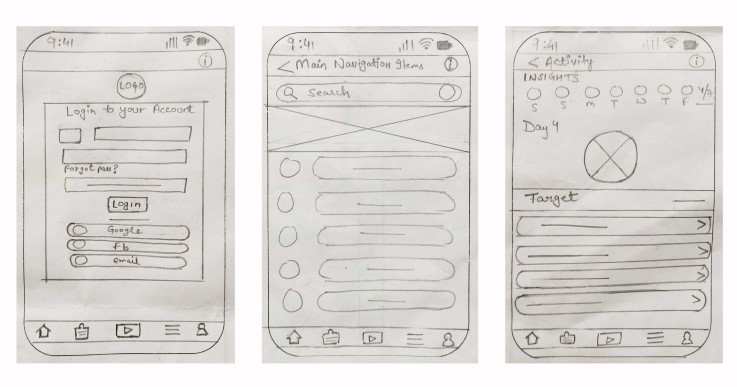 9:41
i
LOGO
Login to your Account
Forgot pass?
Login
Google
Fb
email
9:41
< Main Navigation Items
i
Search
9:41
< Activity
i
INSIGHTS
4/7
S S M T W T F
Day 4
Target